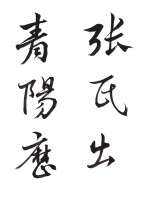 张氏出
青陽歷